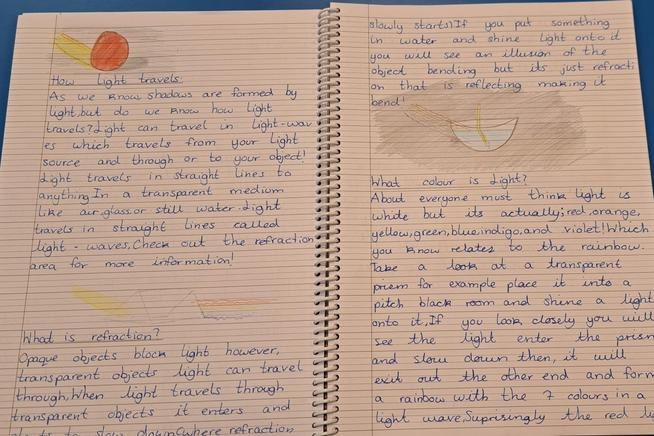 How light travels.
As we know shadows are formed by
light, but do we know how light
travels? Light can travel in light-wav
es which travels from your light
source and through or to your object!
Light travels in straight lines to
anything In a transparent medium
like air, glass, or still water. Light
travels in straight lines called
light-waves, Check out the refraction
area for more information!
What is refraction?
Opaque objects block light however,
transparent objects light can travel
through, When light travels through
transparent objects it enters and
to slow down (where refraction
slowly starts) If you put something
in water and shine light onto it
you will see an illusion of the
object bending but its just refracti
on that is reflecting making it
bend!
What colour is Light?
About everyone must think light is
white but its actually; red, orange,
yellow, green, blue, indigo, and violet! Which
you know relates to the rainbow.
Take a look at a transparent
prism for example place it into a
pitch black room and shine a light
onto it, If you look closely you will
see the light enter the prism
and slow down then, it will
exit out the other end and form
a rainbow with the 7 colours in a
light wave, Suprisingly the red